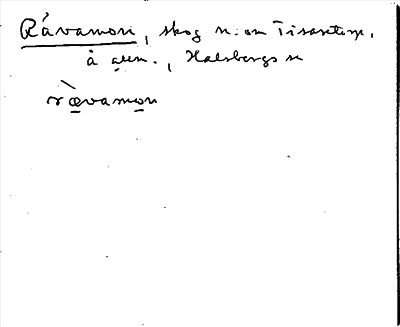 Rávamon, skog n. om Tisartorp,
å äen., Halsbergs sn
r&#768;ævamon